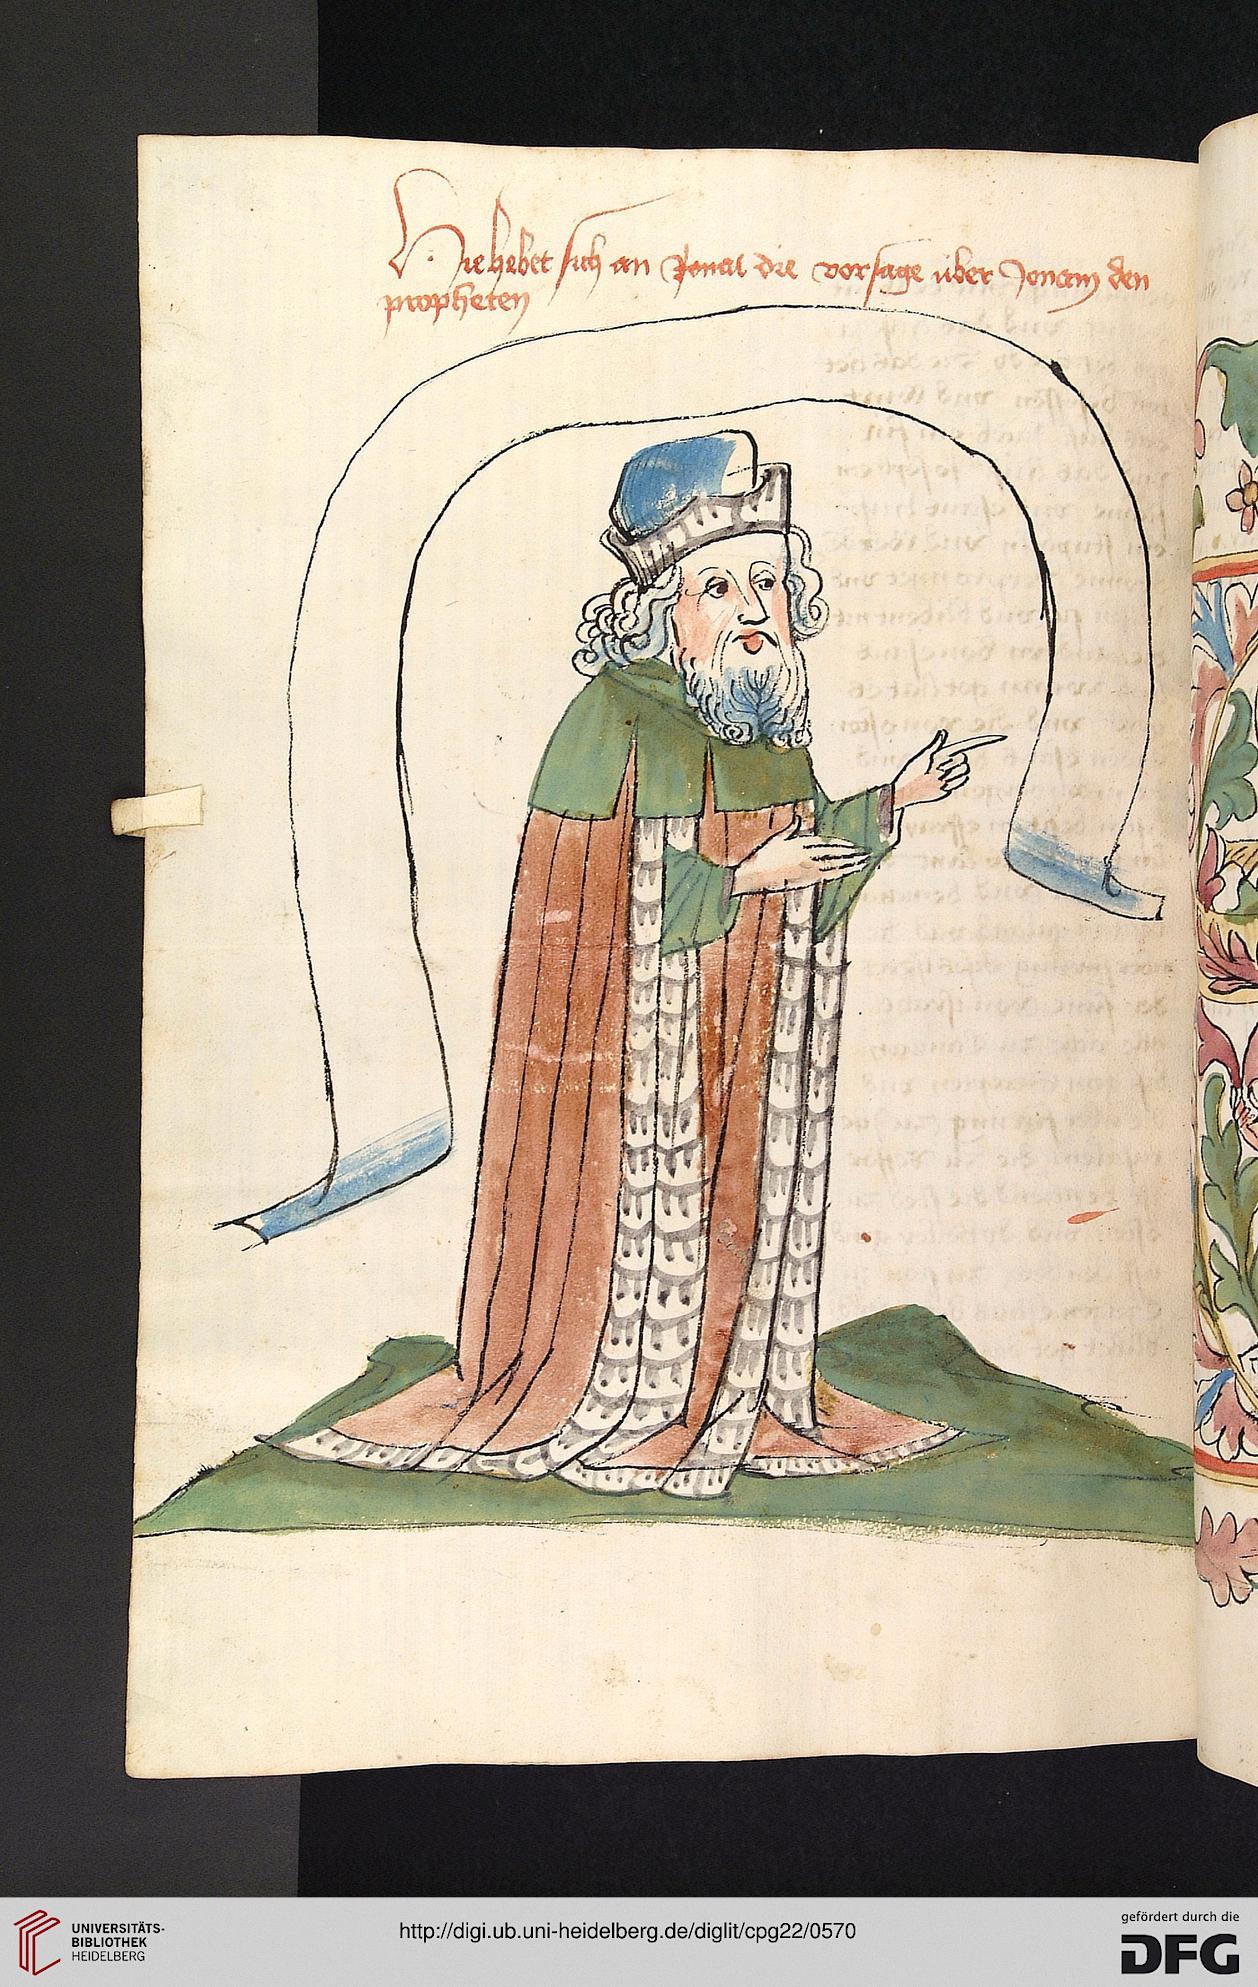 Hie hebet sich an Jonas die vorsage über Jonam den
propheten
UNIVERSITÄTS-
BIBLIOTHEK
HEIDELBERG
http://digi.ub.uni-heidelberg.de/diglit/cpg22/0570
gefördert durch die
DFG